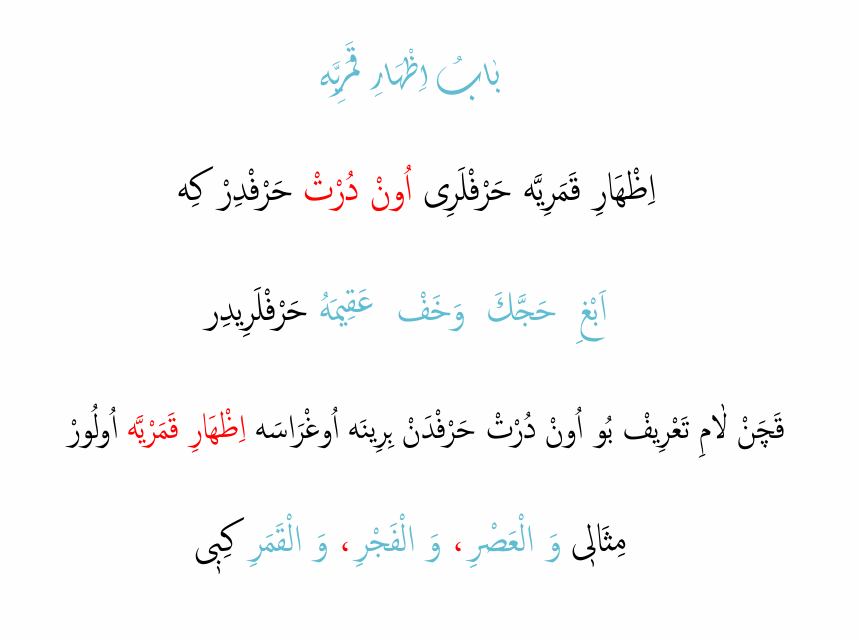 بٰابُ اِظْهَارِ قَمَرِيَّه
اِظْهَارِ قَمَرِيَّه حَرْفْلَرِى اُونْ دُرْتْ حَرْفْدِرْ كِه
اَبْغِ حَجَّكَ وَخَفْ عَقِيمَهُ حَرْفْلَرِيدِر
قَچَنْ لٰامِ تَعْرِيفْ بُو اُونْ دُرْتْ حَرْفْدَنْ بِرِينَه اُوغْرَاسَه اِظْهَارِ قَمَرْيَّه اُولُورْ
مِثَالٖى وَ الْعَصْرِ، وَ الْفَجْرِ، وَ الْقَمَرِ كِبٖى